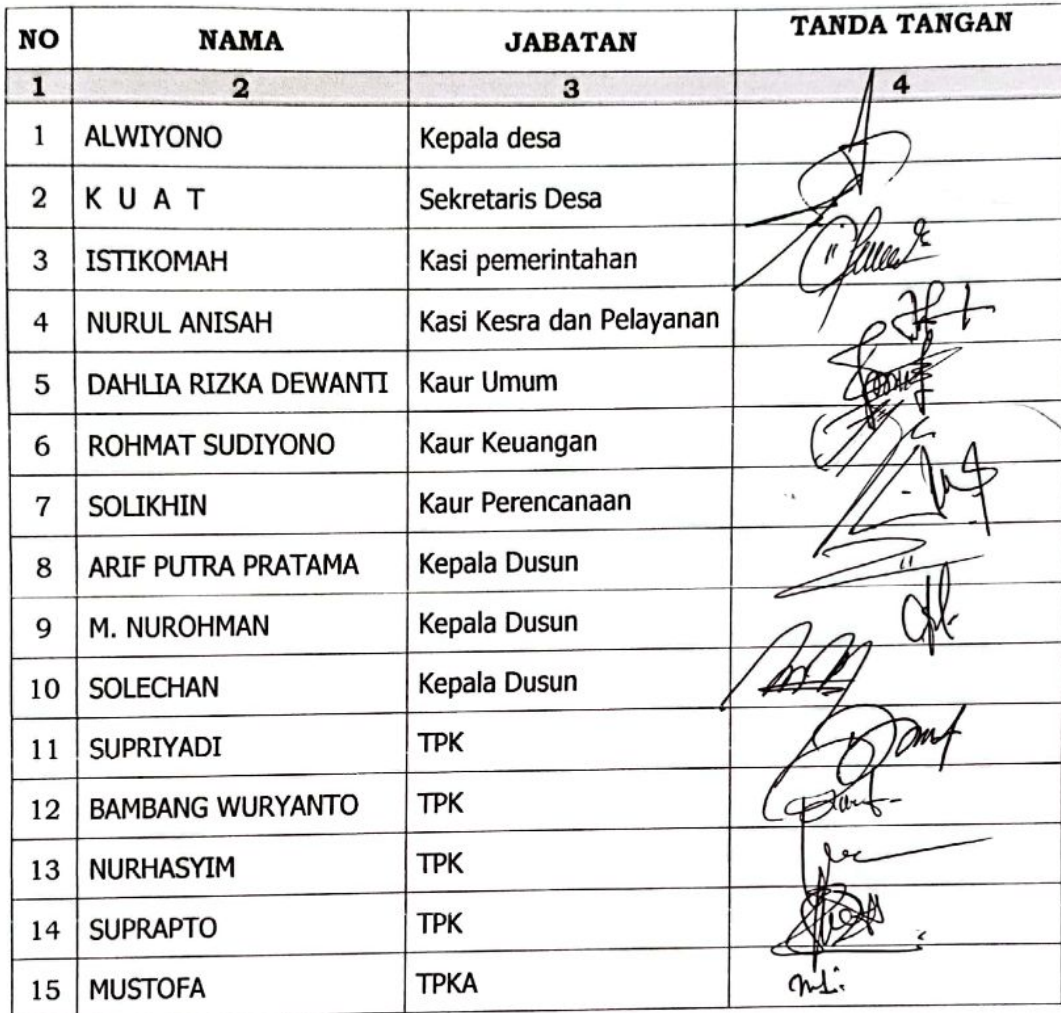 NO NAMA JABATAN TANDA TANGAN
1 2 3 4
1 ALWIYONO Kepala desa
2 K U A T Sekretaris Desa
3 ISTIKOMAH Kasi pemerintahan
4 NURUL ANISAH Kasi Kesra dan Pelayanan
5 DAHLIA RIZKA DEWANTI Kaur Umum
6 ROHMAT SUDIYONO Kaur Keuangan
7 SOLIKHIN Kaur Perencanaan
8 ARIF PUTRA PRATAMA Kepala Dusun
9 M. NUROHMAN Kepala Dusun
10 SOLECHAN Kepala Dusun
11 SUPRIYADI TPK
12 BAMBANG WURYANTO TPK
13 NURHASYIM TPK
14 SUPRAPTO TPK
15 MUSTOFA TPKA